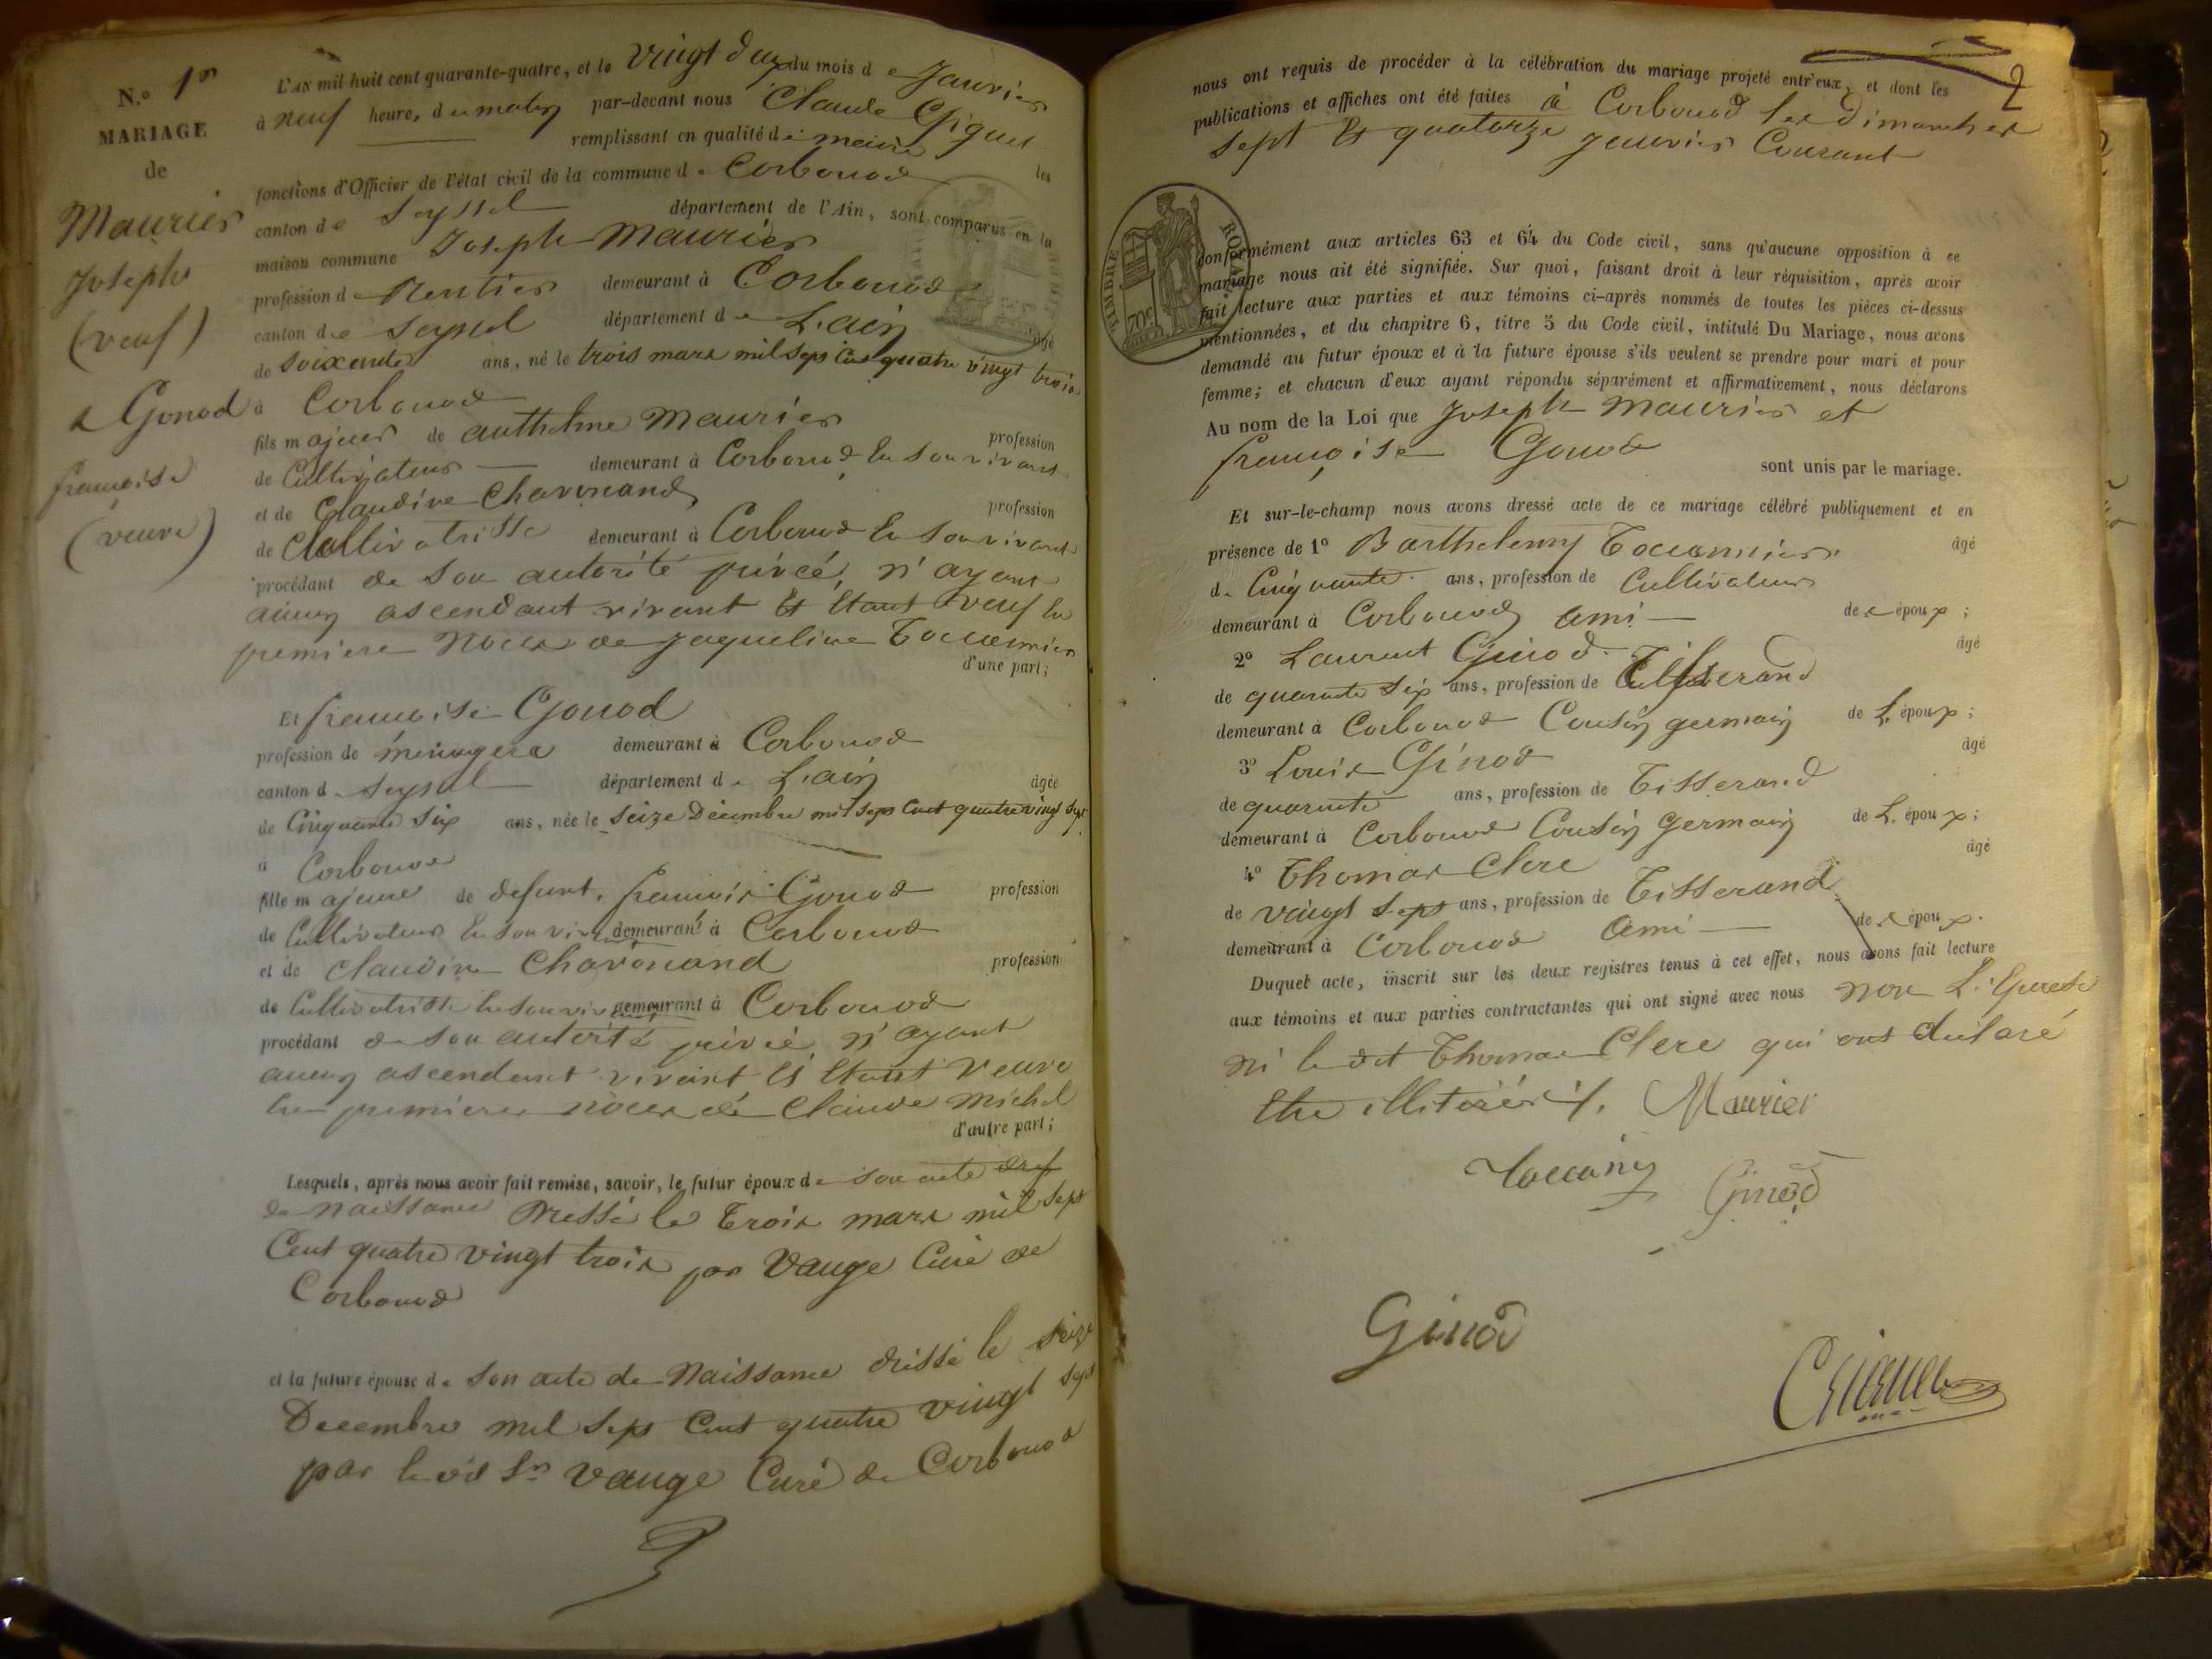 N.º 1er
MARIAGE
de
Maurier
Joseph
(veuf)
& Gonod
françoise
(veuve)
L'AN mil huit cent quarante-quatre, et le vingt deux du mois de Janvier
à neuf heure, du matin par-devant nous Claude Giguet
remplissant en qualité de maire les
fonctions d'Officier de l'état civil de la commune de Corbonod
canton de Seyssel département de l'Ain, sont comparus en la
maison commune Joseph Maurier
profession de Rentier demeurant à Corbonod
canton de Seyssel département de L'ain âgé
de soixante ans, né le trois mars mil sept cent quatre vingt trois
à Corbonod
fils majeur de anthelme Maurier profession
de Cultivateur demeurant à Corbonod en son vivant
et de Claudine Chavonand profession
de Cultivatrisse demeurant à Corbonod En son vivant
procédant de son autorité privée, n'ayant
aucun ascendant vivant Et Etant veuf en
premiere Noces de Jaqueline
d'une part;
Et françoise Gonod
profession de ménagère demeurant à Corbonod
canton de Seyssel département de L'ain âgée
de Cinquante six ans, née le seize Décembre mil sept cent quatre vingt sept
à Corbonod
fille majeure de defunt, françois Gonod profession
de Cultivateur En son vivant demeurant à Corbonod
et de Claudine Chavonand profession
de Cultivatrisse En son vivant demeurant à Corbonod
procédant de son autorité privée n'ayant
aucun ascendant vivant Et Etant veuve
En premieres noces de Claude Michel
d'autre part;
Lesquels, après nous avoir fait remise, savoir, le futur époux de son acte
de Naissance Dressé le trois mars mil sept
Cent quatre vingt trois par Vauge Curé de
Corbonod
et la future épouse de son acte de Naissance dressé le seize
Decembre mil sept Cent quatre vingt sept
par le dit Sr Vauge Curé de Corbonod
2
nous ont requis de procéder à la célébration du mariage projeté entr'eux, et dont les
publications et affiches ont été faites à Corbonod les dimanches
sept Et quatorze Janvier Courant
TIMBRE ROYAL
70c
conformément aux articles 63 et 64 du Code civil, sans qu'aucune opposition à ce
mariage nous ait été signifiée. Sur quoi, faisant droit à leur réquisition, après avoir
fait lecture aux parties et aux témoins ci-après nommés de toutes les pièces ci-dessus
mentionnées, et du chapitre 6, titre 5 du Code civil, intitulé Du Mariage, nous avons
demandé au futur époux et à la future épouse s'ils veulent se prendre pour mari et pour
femme; et chacun d'eux ayant répondu séparément et affirmativement, nous déclarons
Au nom de la Loi que Joseph Maurier et
françoise Gonod
sont unis par le mariage.
Et sur-le-champ nous avons dressé acte de ce mariage célébré publiquement et en
présence de 1º Barthelemy âgé
de Cinquante ans, profession de Cultivateur
demeurant à Corbonod ami de l'époux;
2º Laurent Ginod âgé
de quarante six ans, profession de Tisserand
demeurant à Corbonod Cousin germain de L'époux;
3º Louis Ginod âgé
de quarante ans, profession de Tisserand
demeurant à Corbonod Cousin Germain de L'époux;
4º Thomas Clerc âgé
de vingt sept ans, profession de Tisserand
demeurant à Corbonod Ami de l'époux.
Duquel acte, inscrit sur les deux registres tenus à cet effet, nous avons fait lecture
aux témoins et aux parties contractantes qui ont signé avec nous non L'Epouse
ni le dit Thomas Clerc qui ont declaré
Etre illiterés ./. Maurier
Ginod
Ginod